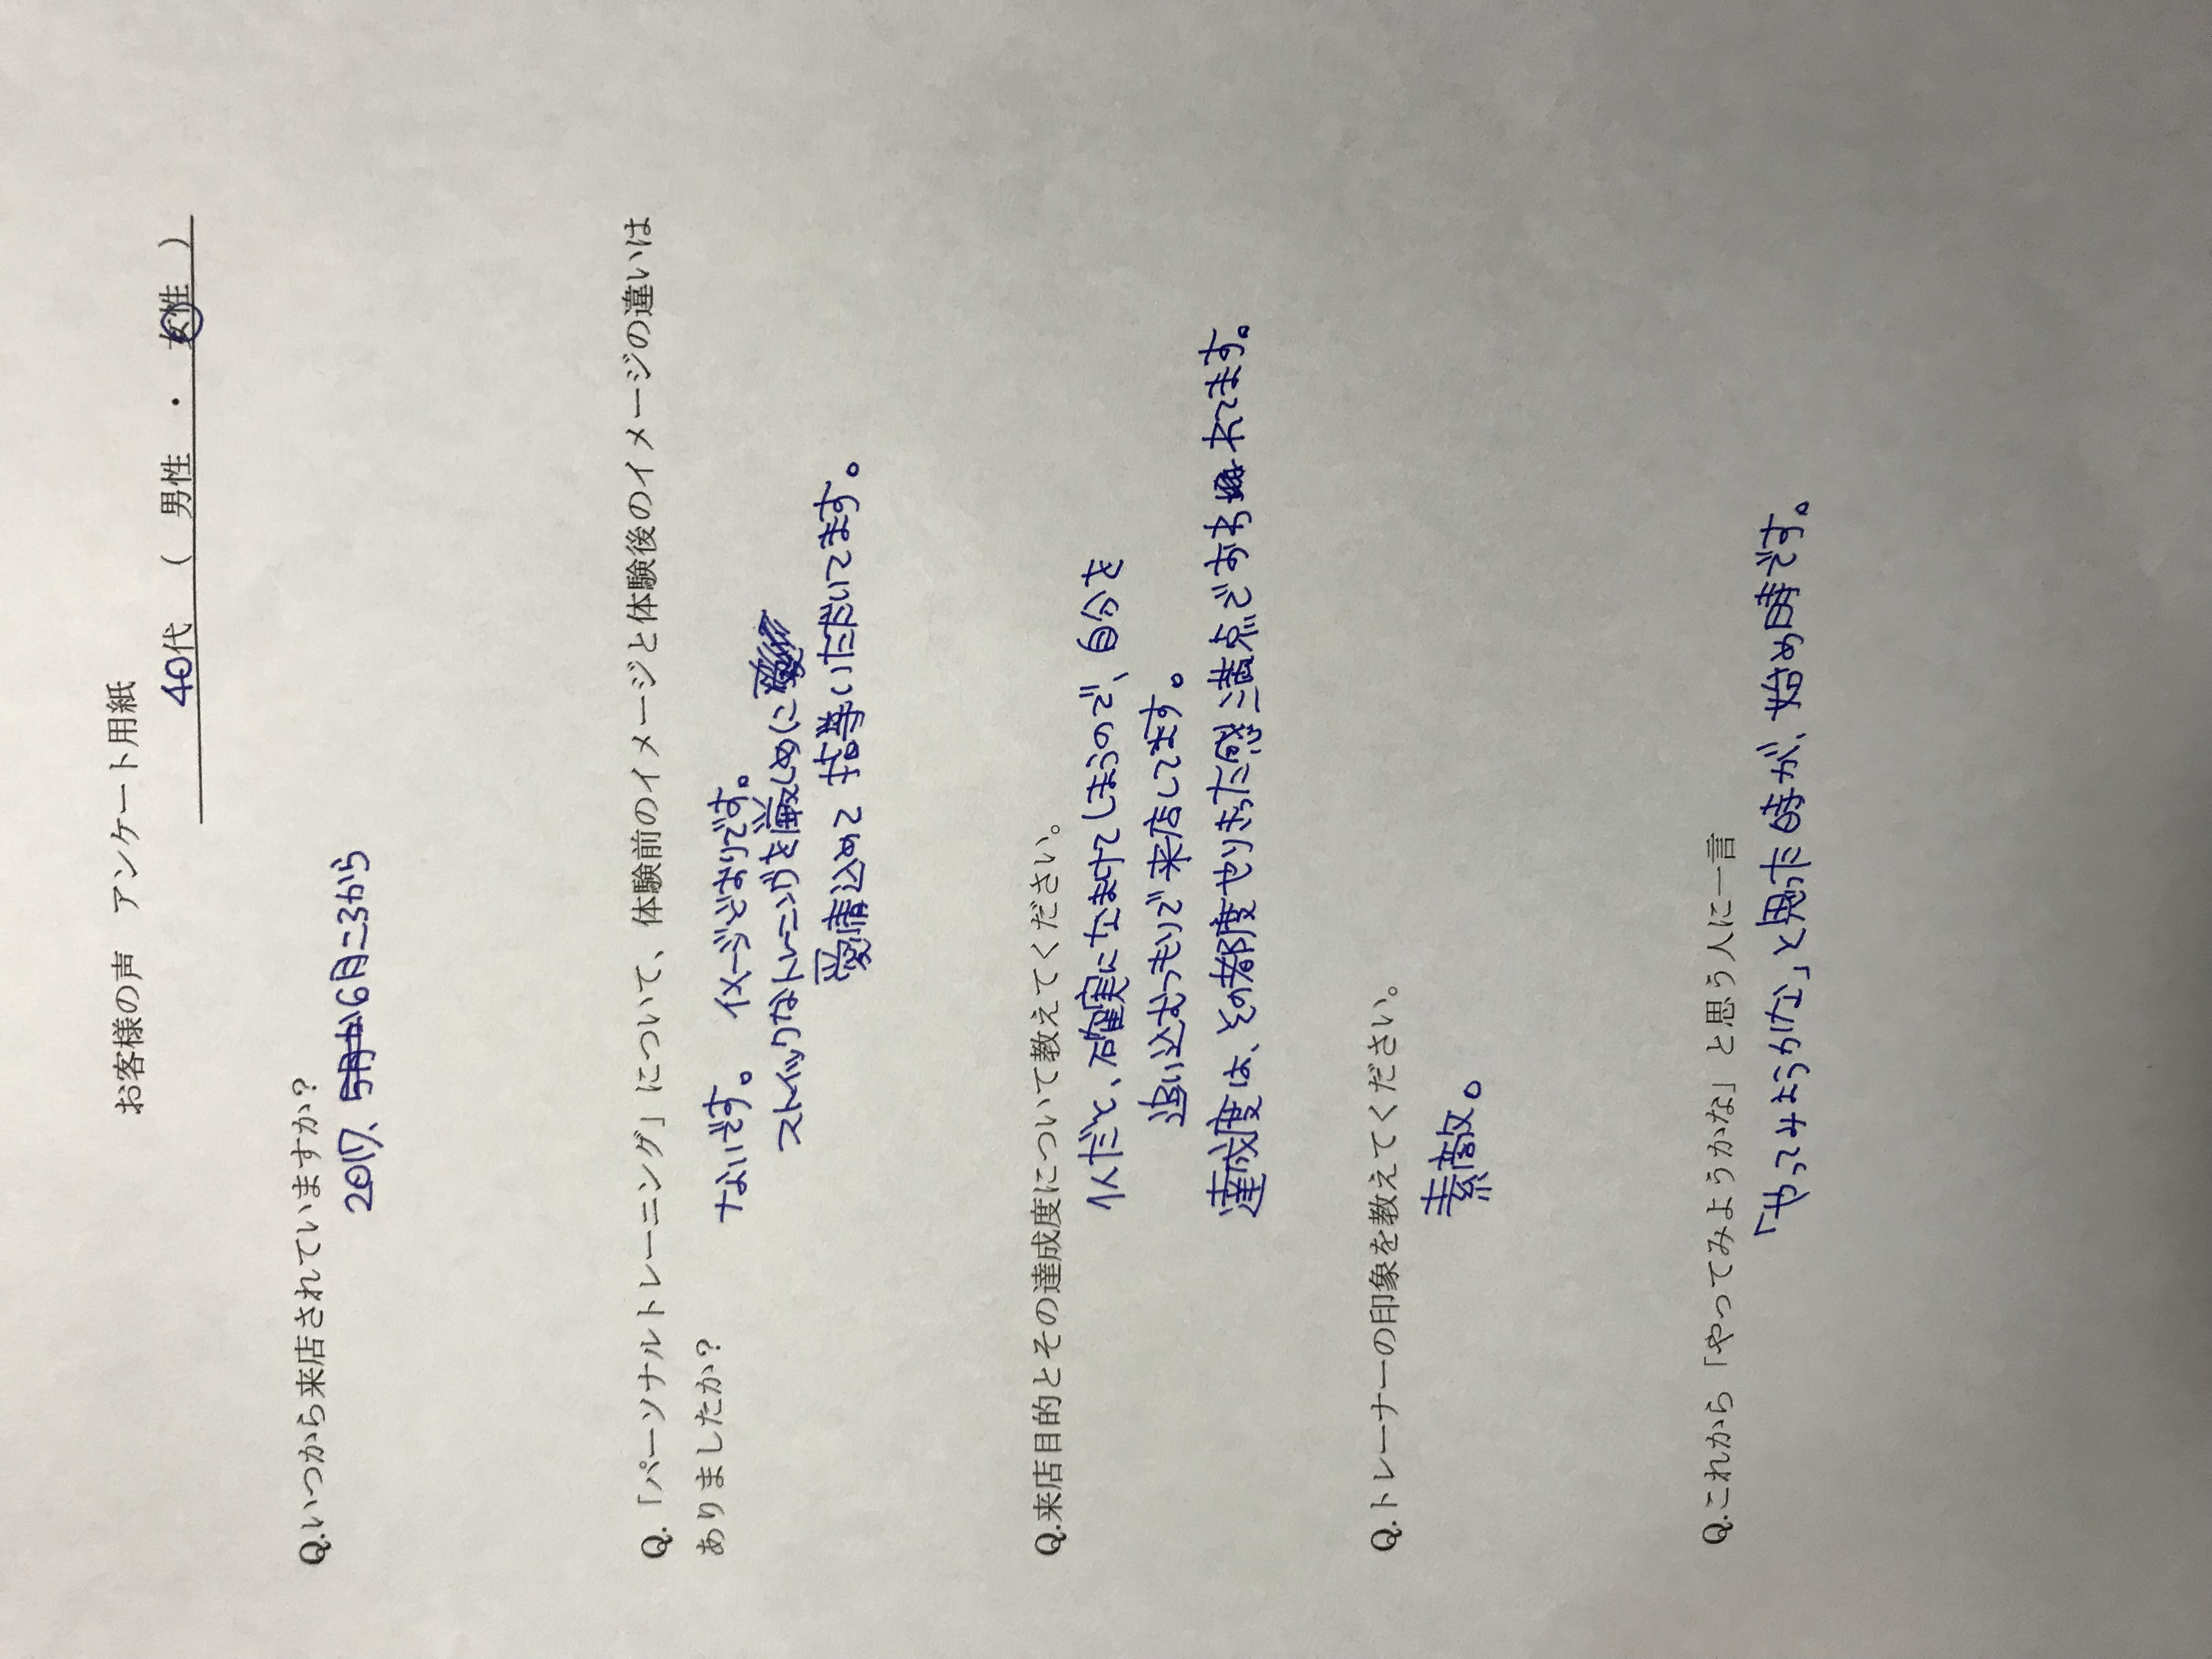 お客様の声　アンケート用紙
40代　（　男性　・　女性　）
Q.いつから来店されていますか？
2017、6月ころから
Q.「パーソナルトレーニング」について、体験前のイメージと体験後のイメージの違いは
ありましたか？
ないです。イメージどおりです。
ストイックなトレーニングを厳しめに
愛情込めて指導いただいてます。
Q.来店目的とその達成度について教えてください。
1人だと、確実になまけてしまうので、自分を
追い込むつもりで来店してます。
達成度は、その都度やりきった感満点でおわれてます。
Q.トレーナーの印象を教えてください。
素敵。
Q.これから「やってみようかな」と思う人に一言
「やってみようかな」と思った時が、始め時です。